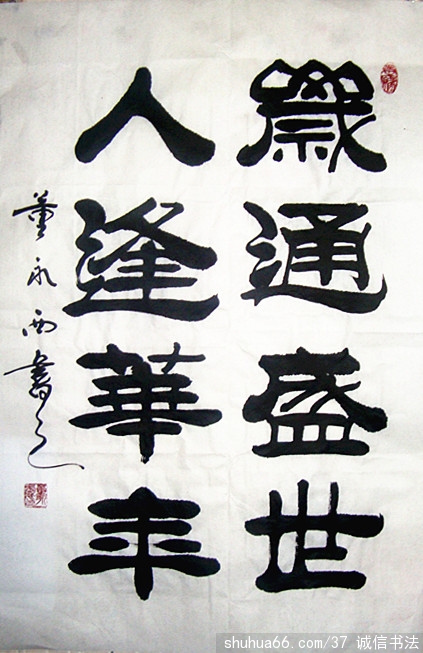 歲通盛世
人逢華年
董永西書之
shuhua66.com/37 诚信书法